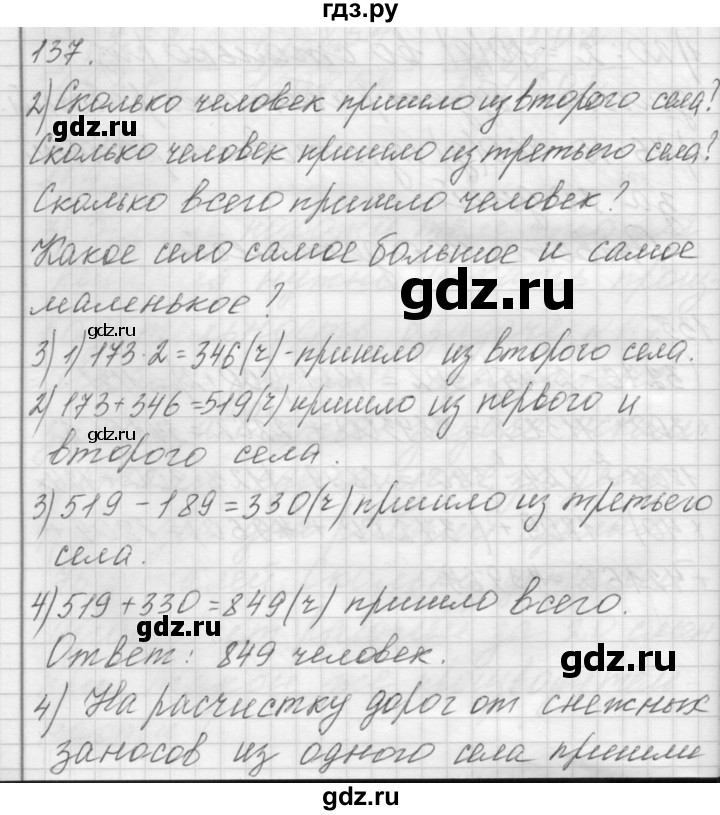 гдз.ру
137.
2) Сколько человек пришло из второго села?
gdz.ru
Сколько человек пришло из третьего села?
Сколько всего пришло человек?
Какое село самое большое и самое
gdz.ru
маленькое?
gdz.ru
3) 1) 173·2=346(ч)-пришло из второго села.
2) 173+346=519(ч) пришло из первого и
gdz.ru
второго села.
3) 519-189=330(ч) пришло из третьего
села.
4) 519+330=849(ч) пришло всего.
gdz.ru
Ответ: 849 человек.
gdz.ru
4) На расчистку дорог от снежных
заносов из одного села пришли
gdz.ru